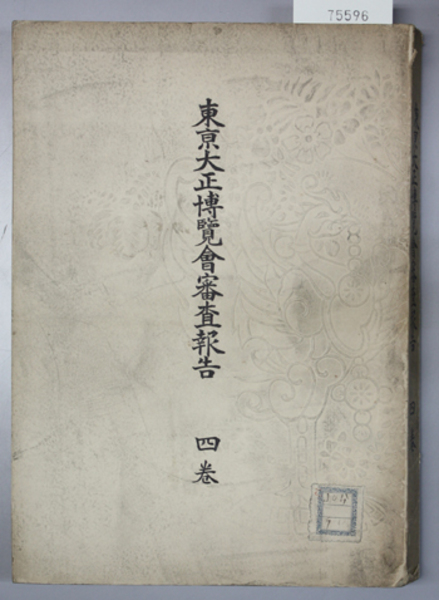 75596
東京大正博覽會審査報告 四卷